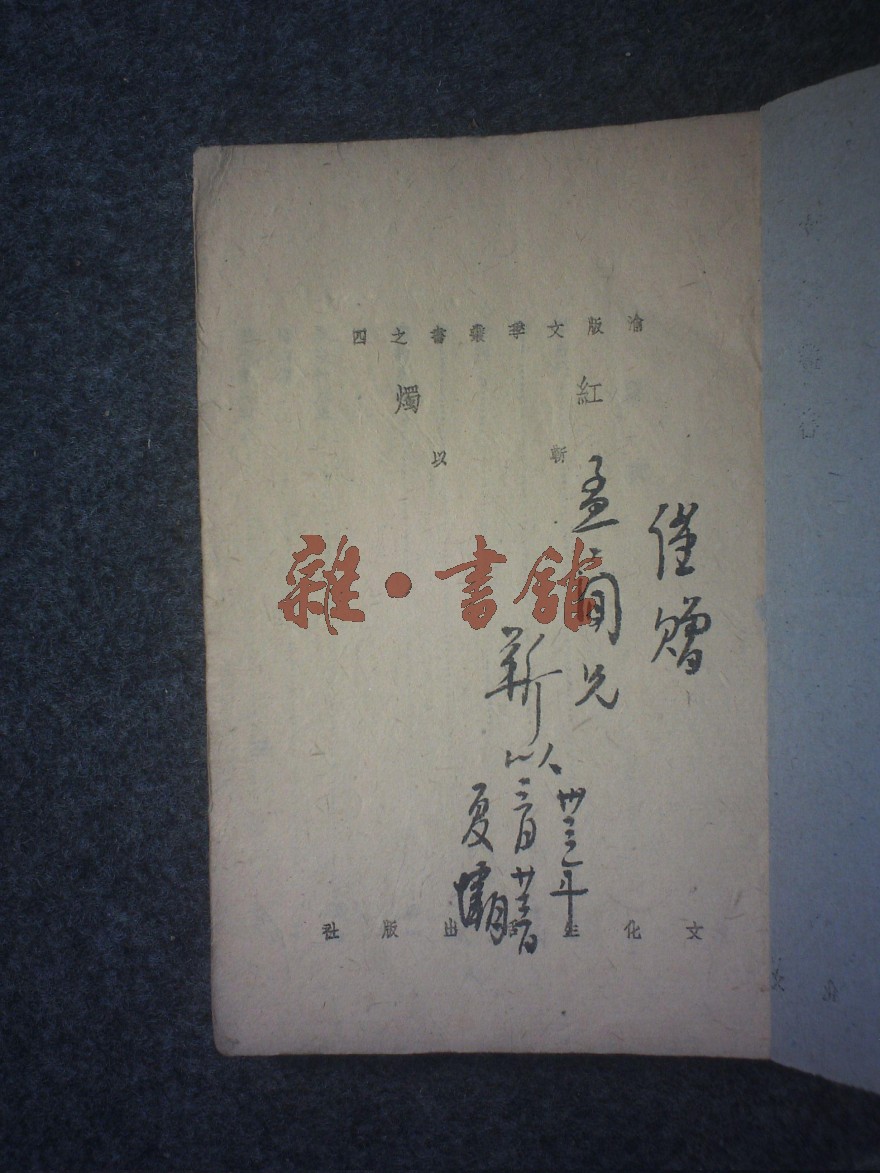 渝版文季叢書之四
紅燭
靳以
謹贈
孟聞兄
靳以
卅三年
三月廿
夏壩
文化生活出版社
雜·書館